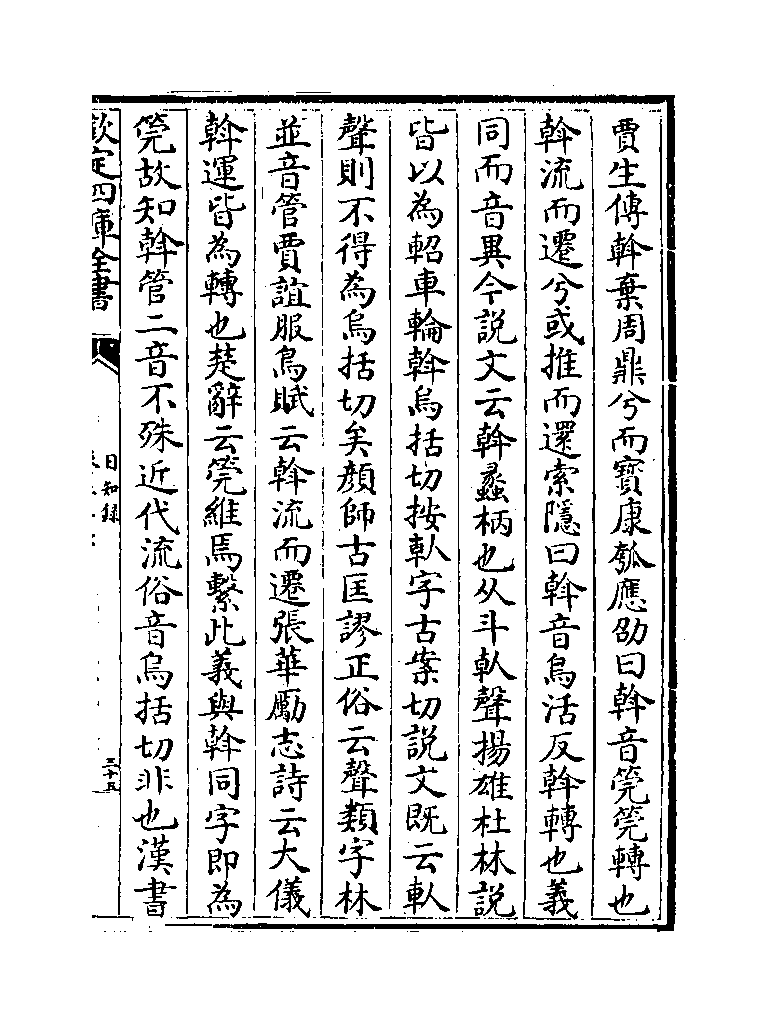 賈生傳斡棄周鼎兮而寶康瓠應劭曰斡音筦筦轉也
斡流而遷兮或推而還索隱曰斡音烏活反斡轉也義
同而音異今説文云斡蠡柄也从斗倝聲揚雄杜林説
皆以為軺車輪斡烏括切按倝字古案切説文既云倝
聲則不得為烏括切矣顔師古匡謬正俗云聲類字林
並音管賈誼服鳥賦云斡流而遷張華勵志詩云大儀
斡運皆為轉也楚辭云筦維焉繫此義與斡同字即為
筦故知斡管二音不殊近代流俗音烏括切非也漢書
欽定四庫全書
日知録
三十五